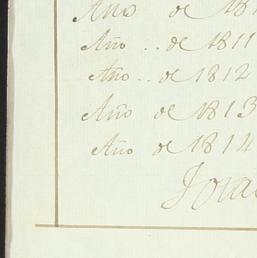 Año de 181
Año .. de 1811
Año .. de 1812
Año de 1813
Año de 1814